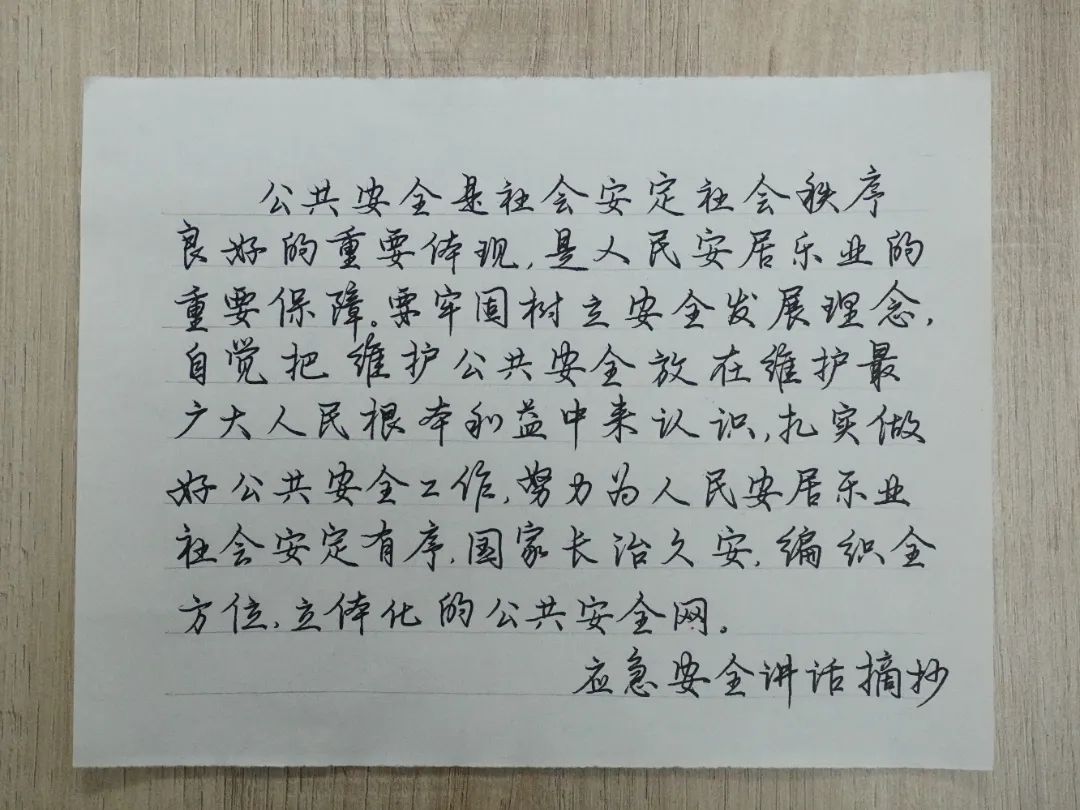 公共安全是社会安定社会秩序
良好的重要体现,是人民安居乐业的
重要保障。要牢固树立安全发展理念,
自觉把维护公共安全放在维护最
广大人民根本利益中来认识,扎实做
好公共安全工作,努力为人民安居乐业
社会安定有序,国家长治久安,编织全
方位,立体化的公共安全网。
应急安全讲话摘抄